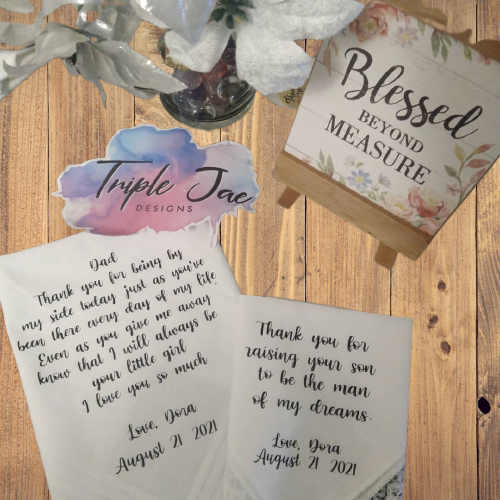 Blessed
BEYOND
MEASURE
Triple Jae
DESIGNS
Dad
Thank you for being by
my side today just as you've
been there every day of my life.
Even as you give me away
know that I will always be
your little girl
I love you so much
Love, Dora
August 21 2021
Thank you for
raising your son
to be the man
of my dreams.
Love, Dora
August 21 2021